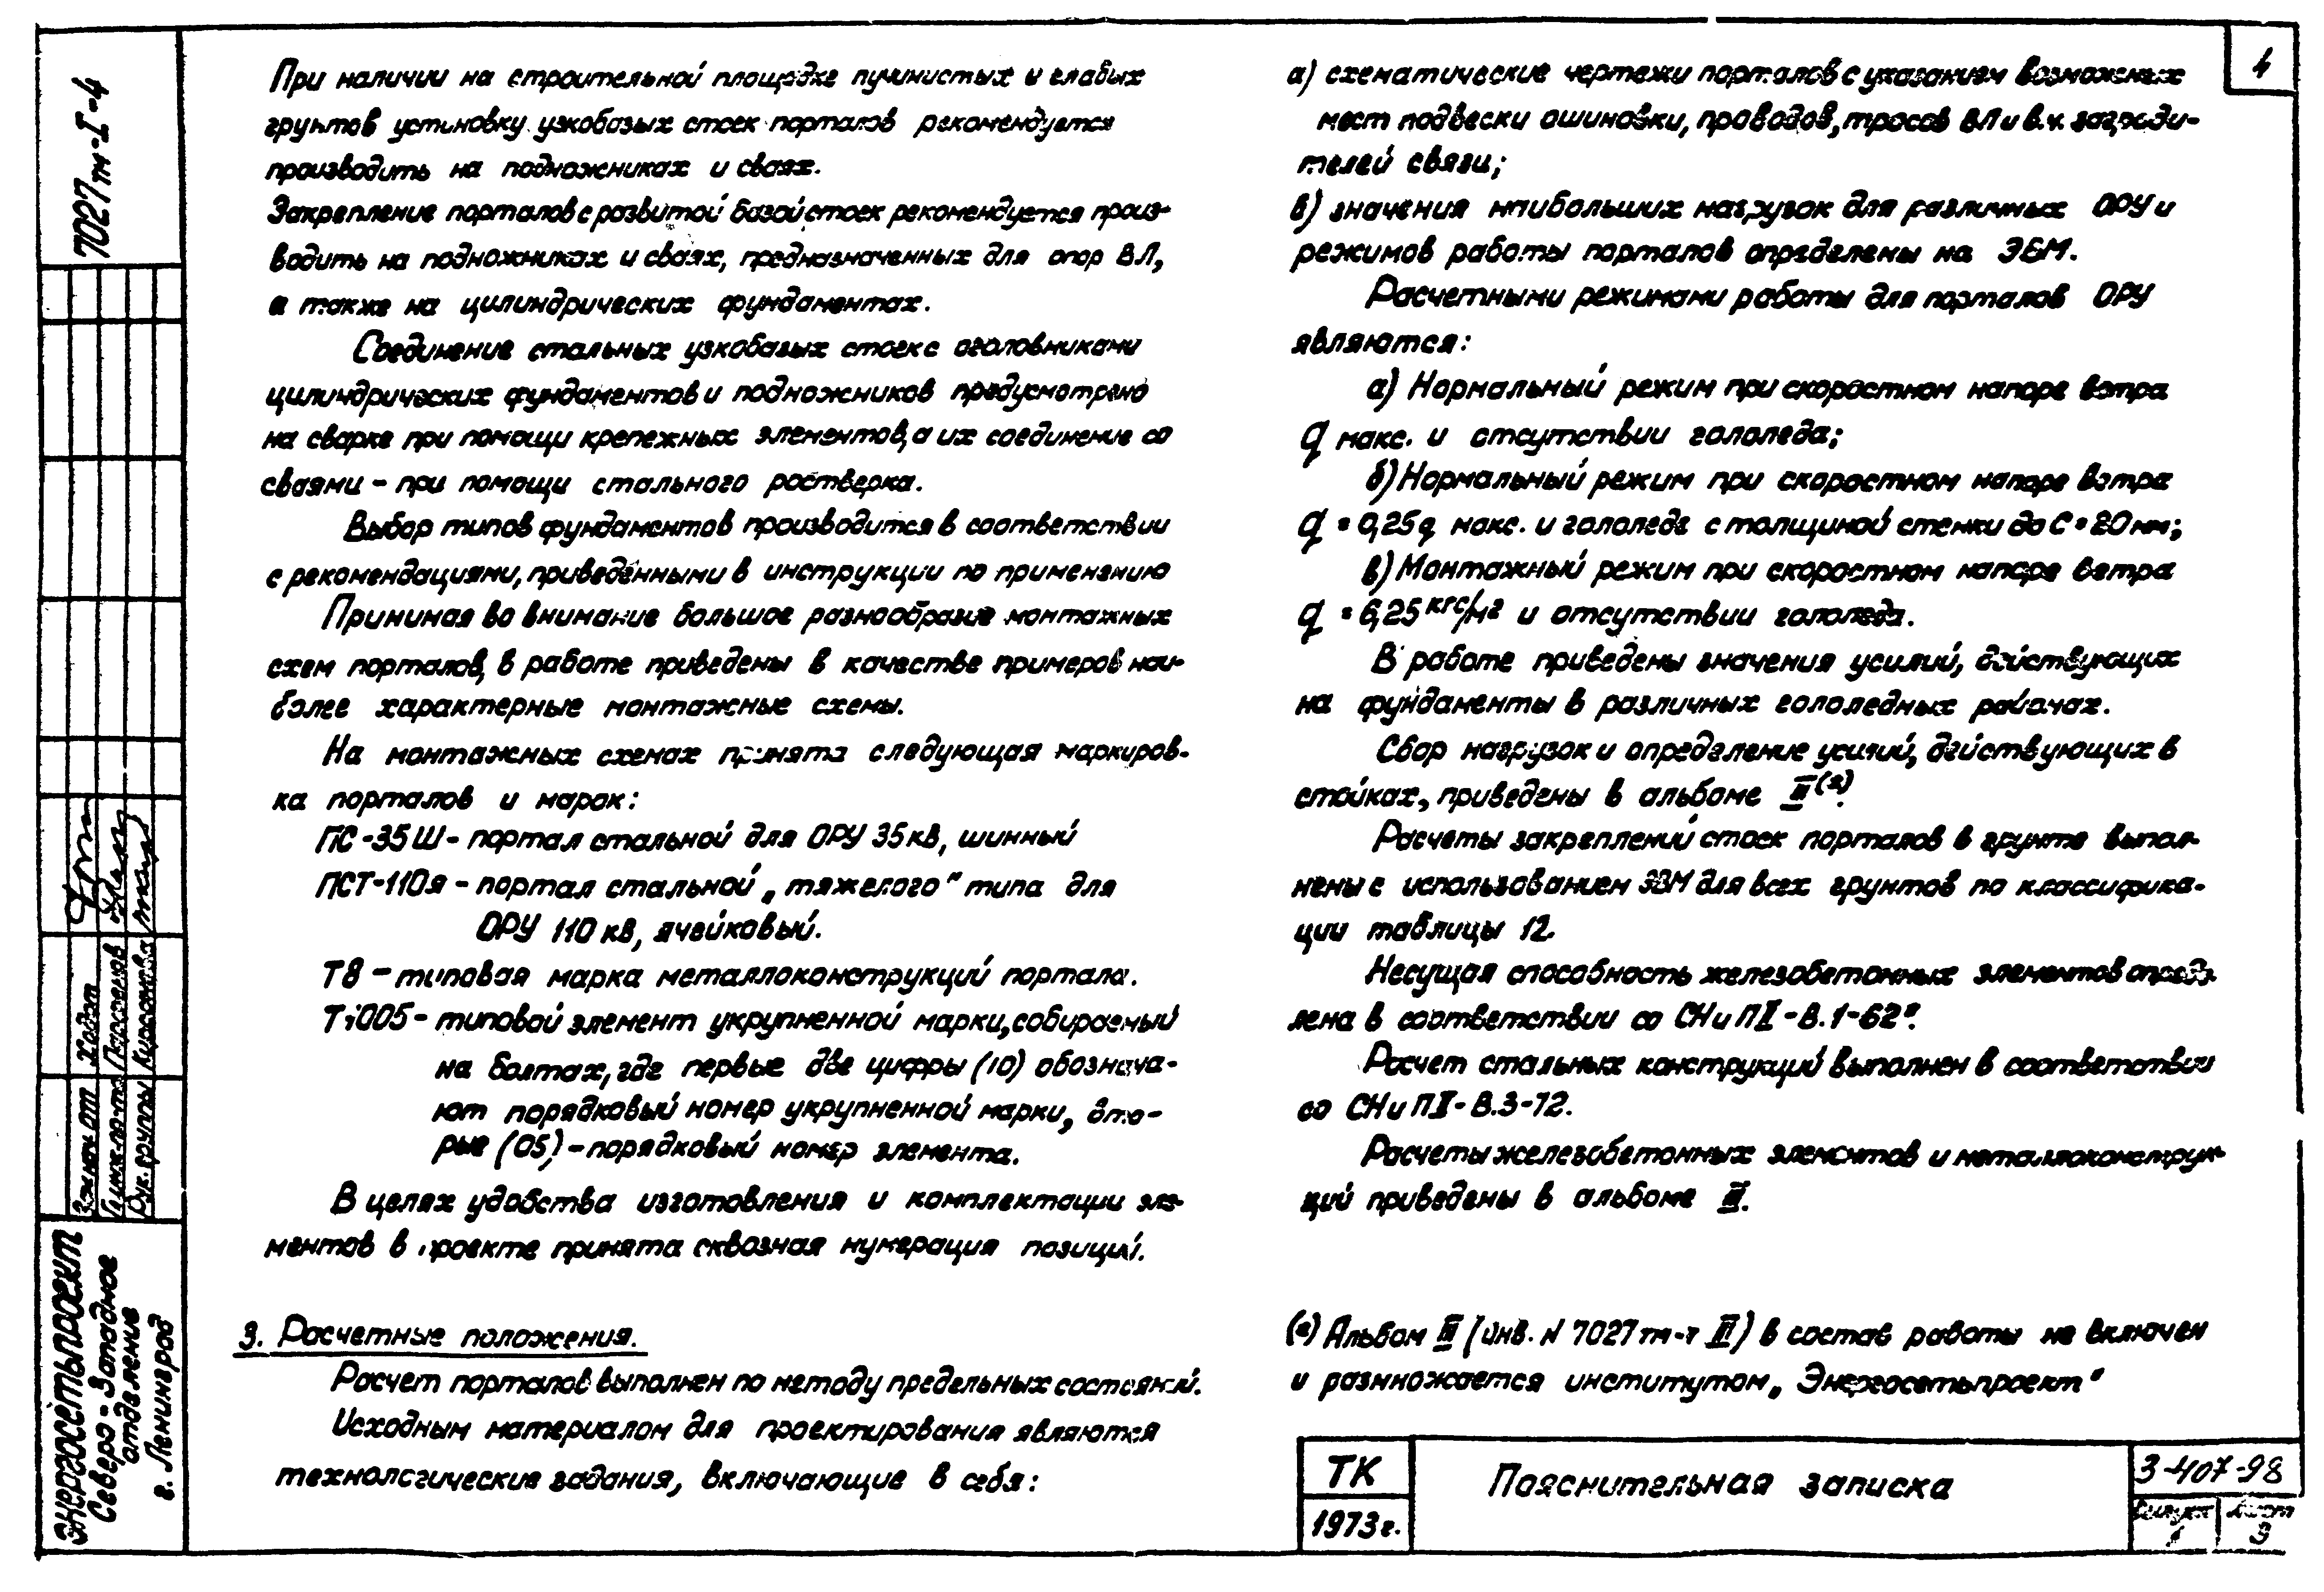 При наличии на строительной площадке пучинистых и слабых
грунтов установку узкобазых стоек порталов рекомендуется
производить на подножниках и сваях.
Закрепление порталов с развитой базой стоек рекомендуется произ-
водить на подножниках и сваях, предназначенных для опор ВЛ,
а также на цилиндрических фундаментах.
Соединение стальных узкобазых стоек с оголовниками
цилиндрических фундаментов и подножников предусмотрено
на сварке при помощи крепежных элементов, а их соединение со
сваями - при помощи стального ростверка.
Выбор типов фундаментов производится в соответствии
с рекомендациями, приведенными в инструкции по применению
Принимая во внимание большое разнообразие монтажных
схем порталов, в работе приведены в качестве примеров наи-
более характерные монтажные схемы.
На монтажных схемах принята следующая маркиров-
ка порталов и марок:
ПС-35Ш - портал стальной для ОРУ 35кв, шинный
ПСТ-110я - портал стальной „тяжелого" типа для
ОРУ 110 кв, ячейковый.
Т8 - типовая марка металлоконструкций портала.
Т1005 - типовой элемент укрупненной марки, собираемый
на болтах, где первые две цифры (10) обознача-
ют порядковый номер укрупненной марки, вто-
рые (05) - порядковый номер элемента.
В целях удобства изготовления и комплектации эле-
ментов в проекте принята сквозная нумерация позиций.
3. Расчетные положения.
Расчет порталов выполнен по методу предельных состояний.
Исходным материалом для проектирования являются
технологические задания, включающие в себя:
4
а) схематические чертежи порталов с указанием возможных
мест подвески ошиновки, проводов, тросов ВЛ и в.ч. загради-
телей связи;
в) значения наибольших нагрузок для различных ОРУ и
режимов работы порталов определены на ЭВМ.
Расчетными режимами работы для порталов ОРУ
являются:
а) Нормальный режим при скоростном напоре ветра
q макс. и отсутствии гололеда;
б) Нормальный режим при скоростном напоре ветра
q = 0,25q макс. и гололеде с толщиной стенки до С = 20мм;
в) Монтажный режим при скоростном напоре ветра
q = 6,25 кгс/м2 и отсутствии гололеда.
В работе приведены значения усилий, действующих
на фундаменты в различных гололедных районах.
Сбор нагрузок и определение усилий, действующих в
стойках, приведены в альбоме III
Расчеты закреплений стоек порталов в грунте выпол-
нены с использованием ЭВМ для всех грунтов по классифика-
ции таблицы 12.
Несущая способность железобетонных элементов опреде-
лена в соответствии со СНиП II-В.1-62*.
Расчет стальных конструкций выполнен в соответствии
со СНиП II-В.3-72.
Расчеты железобетонных элементов и металлоконструк-
ций приведены в альбоме III.
Альбом III (инв. N 7027тм-т III) в состав работы не включен
и размножается институтом „Энергосетьпроект"
ТК
1973г.
Пояснительная записка
3-407-98
Выпуск
1
Лист
3
7027тм-I-4
Ходот
Парфенов
Зам.нач.от
Рук.группы
Энергосетьпроект
Северо-Западное
отделение
г. Ленинград